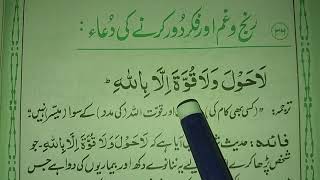 ۳۸
رنج و غم اور فکر دور کرنے کی دُعاء :
لَا حَوْلَ وَلَا قُوَّةَ اِلَّا بِاللهِ ط
ترجمہ: "کسی بھی کام کی اور قوت اللہ (کی مدد) کے سوا میسر نہیں"
فائدہ: حدیث آیا ہے کہ لَا حَوْلَ وَلَا قُوَّةَ اِلَّا بِاللهِ۔ جو
شخص پڑھا کرے یہ ننانوے دکھ اور بیماریوں کی دوا ہے جس